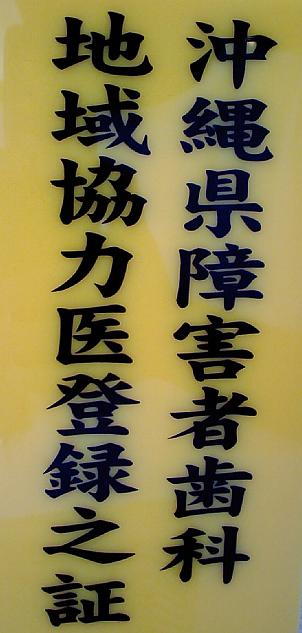 沖縄県障害者歯科
地域協力医登録之証